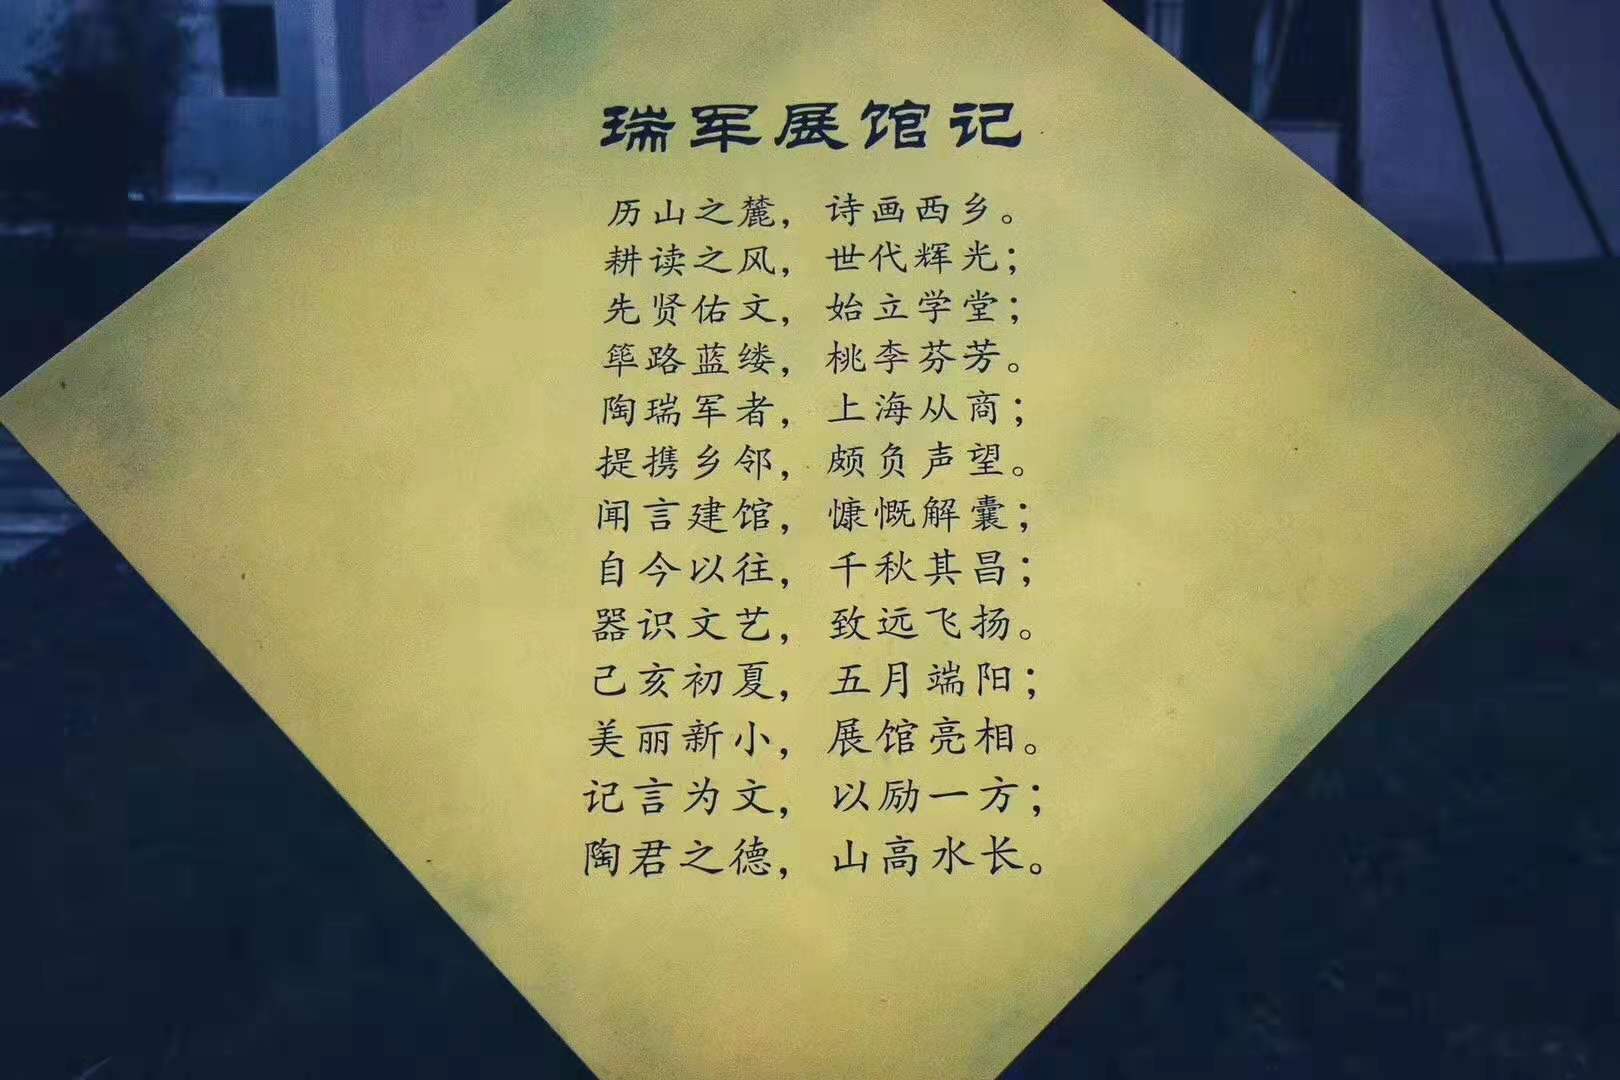 瑞军展馆记
历山之麓，诗画西乡。
耕读之风，世代辉光；
先贤佑文，始立学堂；
筚路蓝缕，桃李芬芳。
陶瑞军者，上海从商；
提携乡邻，颇负声望。
闻言建馆，慷慨解囊；
自今以往，千秋其昌；
器识文艺，致远飞扬。
己亥初夏，五月端阳；
美丽新小，展馆亮相。
记言为文，以励一方；
陶君之德，山高水长。